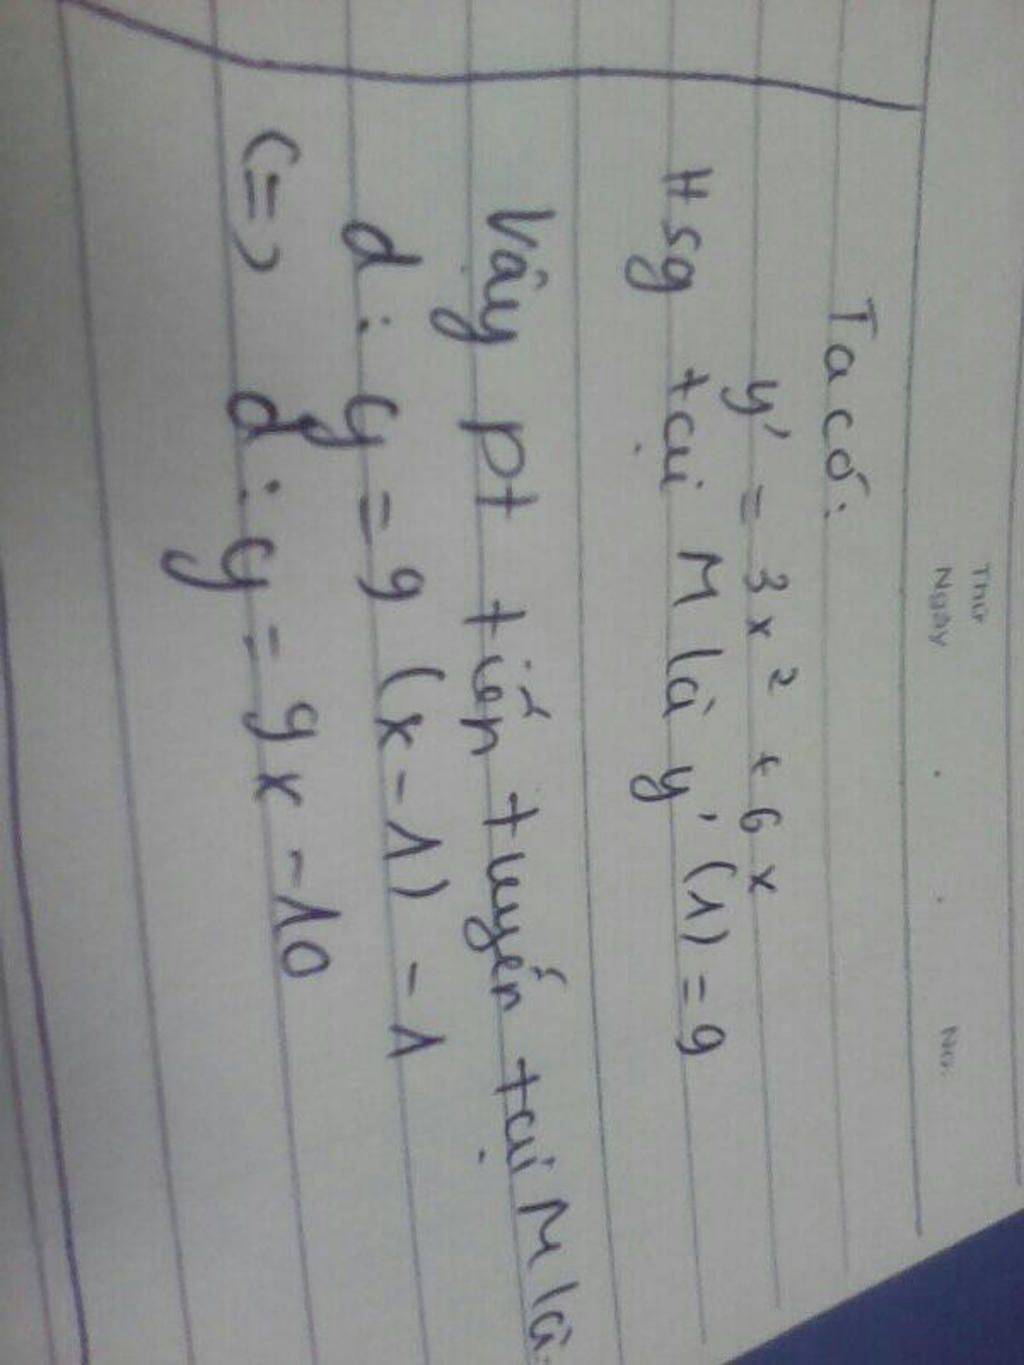 Thứ
Ngày . . No.
Ta có:
y' = 3x² + 6x
Hsg tại M là y'(1) = 9
Vậy pt tiếp tuyến tại M là:
d: y = 9(x-1) - 1
<=> d: y = 9x - 10